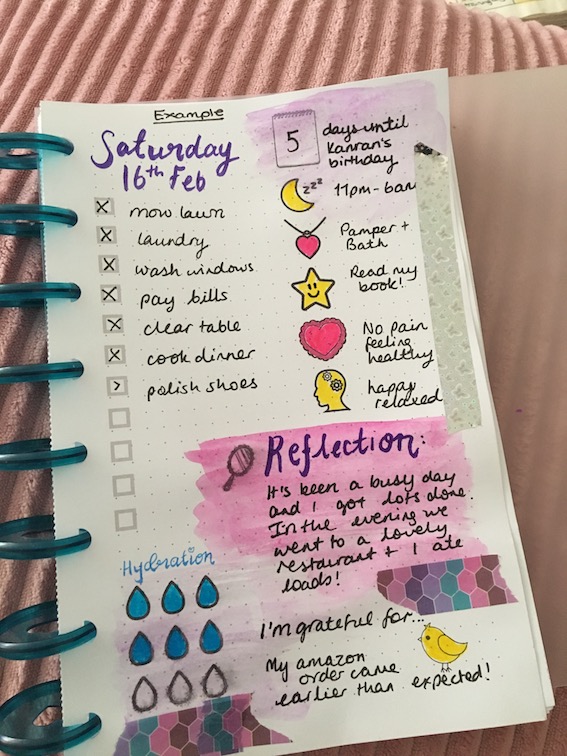 Example
Saturday
16th Feb
mow lawn
laundry
wash windows
pay bills
clear table
cook dinner
polish shoes
5
days until
Kanran's
birthday
zzz
11pm - 6am
Pamper +
Bath
Read my
book!
No pain
feeling
healthy
happy
relaxed
Reflection:
It's been a busy day
and I got lots done.
In the evening we
went to a lovely
restaurant + I ate
loads!
Hydration
I'm grateful for...
My amazon
order came
earlier than expected!